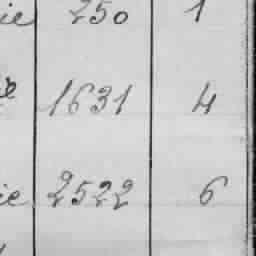 ie 250 1
e 1631 4
ie 2522 6